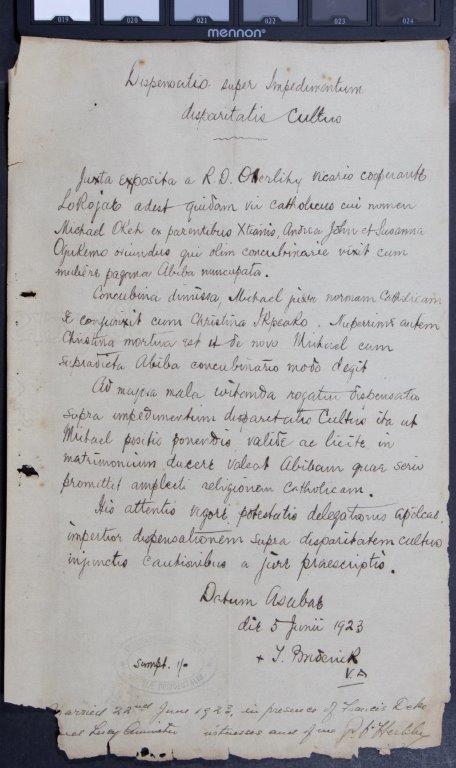 019 020 021 022 023 024
mennon
Dispensatio super Impedimentum
disparitatis Cultus
Juxta exposita a R. D. O'Herlihy vicario cooperante
Lokojae adest quidam vir catholicus cui nomen
Michael Okeh ex parentibus Xtianis, Andrea John et Susanna
oriundus qui olim concubinarie vixit cum
muliere pagana Abiba nuncupata.
Concubina dimissa, Michael juxta normam Catholicam
se conjunxit cum Christina Ikpeako. Nuperrime autem
Christina mortua est et de novo Michael cum
supradicta Abiba concubinario modo degit
Ad majora mala vitanda rogatur dispensatio
supra impedimentum disparitatis Cultus ita ut
Michael positis ponendis valide ac licite in
matrimonium ducere valeat Abibam quae serio
promittit amplecti religionem Catholicam.
His attentis vigore potestatis delegationis aplcae
impertior dispensationem supra disparitatem cultus
injunctis cautionibus a jure praescriptis.
Datum Asabae
die 5 Junii 1923
+ T. Broderick
V.A
sumpt. 1/-
Married 22nd June 1923, in presence of Francis
and Lucy witnesses and of me O'Herlihy